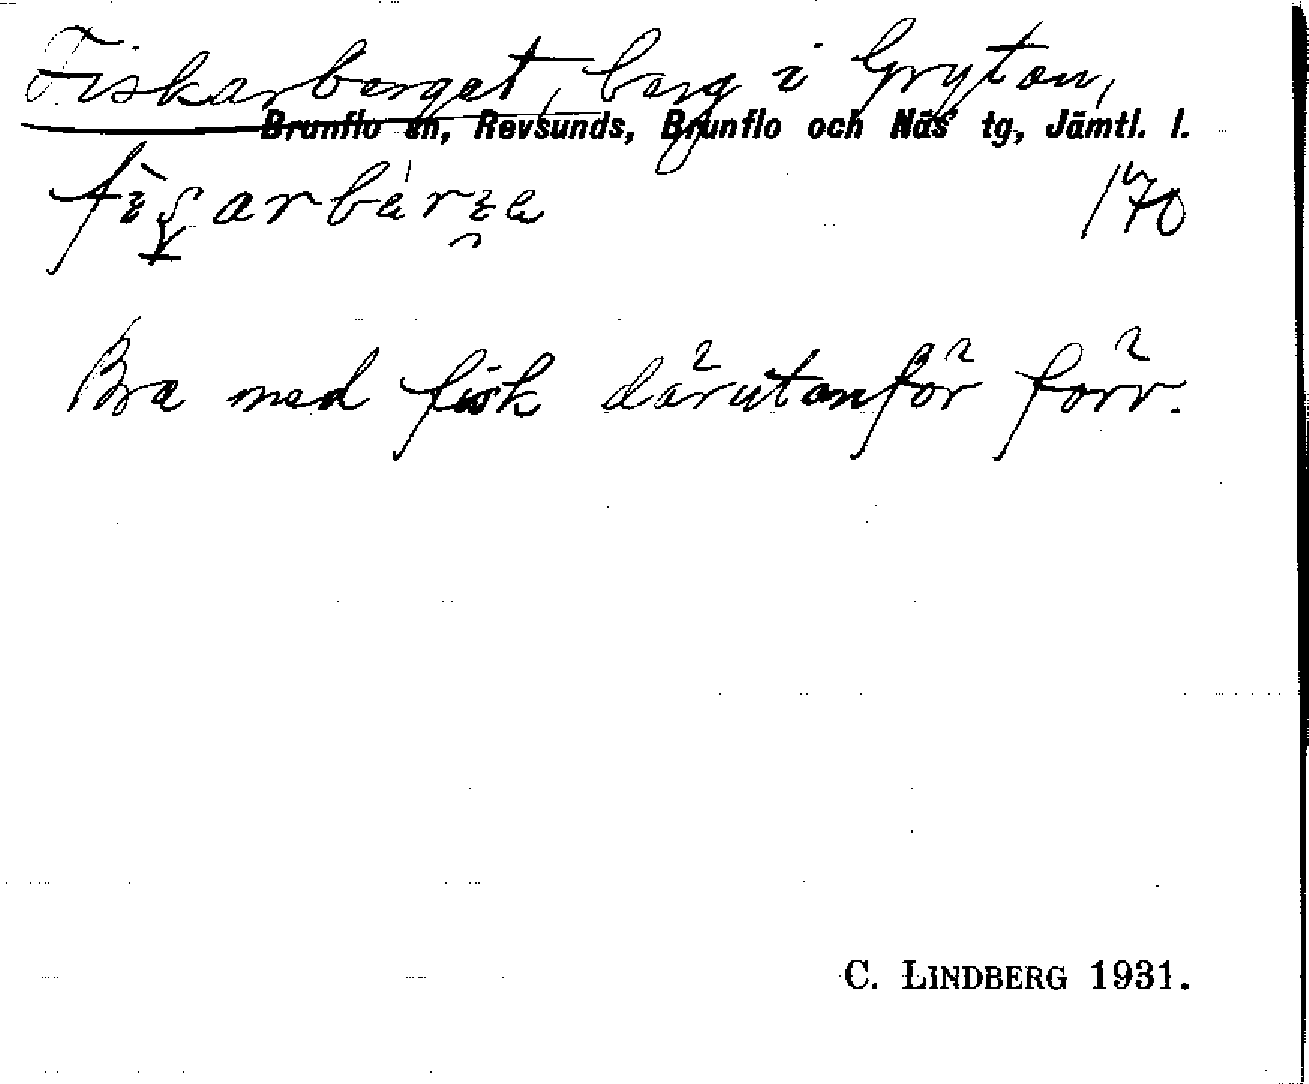 Fiskarberget, berg i Gryten,
Brunflo sn, Revsunds, Brunflo och Näs' tg, Jämtl. l.
170
Bra med fisk därutanför förr.
C. LINDBERG 1931.